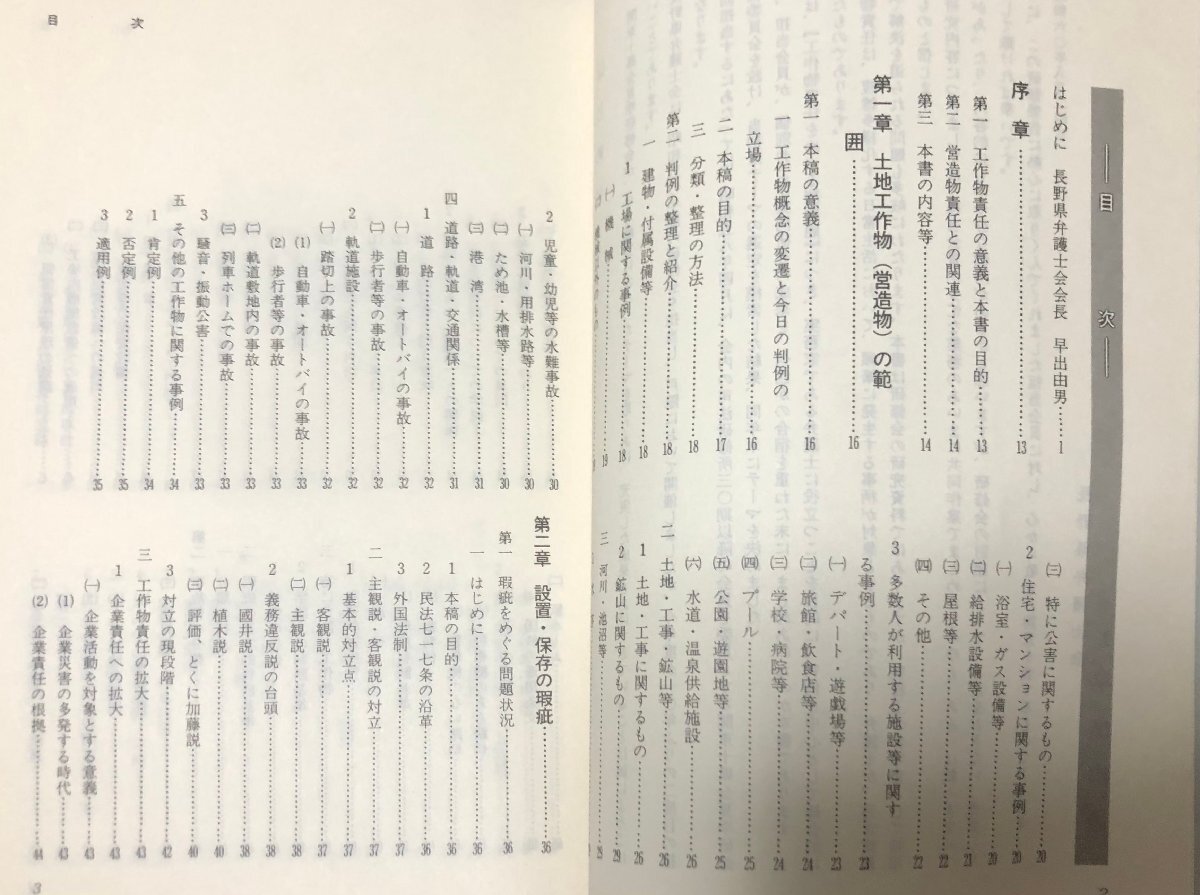 目　次
はじめに　長野県弁護士会会長　早出由男……1
序　章……13
第一　工作物責任の意義と本書の目的……13
第二　営造物責任との関連……14
第三　本書の内容等……14
第一章　土地工作物（営造物）の範
囲……16
第一　本稿の意義……16
一　工作物概念の変遷と今日の判例の
立場……16
二　本稿の目的……17
三　分類・整理の方法……18
第二　判例の整理と紹介……18
一　建物・付属設備等……18
1　工場に関する事例……18
㈠　機　械……19
㈢　特に公害に関するもの……20
2　住宅・マンションに関する事例……20
㈠　浴室・ガス設備等……20
㈡　給排水設備等……21
㈢　屋根等……22
㈣　その他……22
3　多数人が利用する施設等に関す
る事例……23
㈠　デパート・遊戯場等……23
㈡　旅館・飲食店等……24
㈢　学校・病院等……24
㈣　プール……25
㈤　公園・遊園地等……25
㈥　水道・温泉供給施設……26
二　土地・工事・鉱山等……26
1　土地・工事に関するもの……26
2　鉱山に関するもの……29
三　河川・池沼等……29
目　次
2　児童・幼児等の水難事故……30
㈠　河川・用排水路等……30
㈡　ため池・水槽等……30
㈢　港　湾……31
四　道路・軌道・交通関係……31
1　道　路……32
㈠　自動車・オートバイの事故……32
㈡　歩行者等の事故……32
2　軌道施設……32
㈠　踏切上の事故……32
⑴　自動車・オートバイの事故……33
⑵　歩行者等の事故……33
㈡　軌道敷地内の事故……33
㈢　列車ホームでの事故……33
3　騒音・振動公害……33
五　その他の工作物に関する事例……34
1　肯定例……34
2　否定例……35
3　適用例……35
第二章　設置・保存の瑕疵……36
第一　瑕疵をめぐる問題状況……36
一　はじめに……36
1　本稿の目的……36
2　民法七一七条の沿革……36
3　外国法制……37
二　主観説・客観説の対立……37
1　基本的対立点……37
㈠　客観説……37
㈡　主観説……38
2　義務違反説の台頭……38
㈠　國井説……38
㈡　植木説……40
㈢　評価、とくに加藤説……40
3　対立の現段階……42
三　工作物責任の拡大……43
1　企業責任への拡大……43
㈠　企業活動を対象とする意義……43
⑴　企業災害の多発する時代……43
⑵　企業責任の根拠……44
3